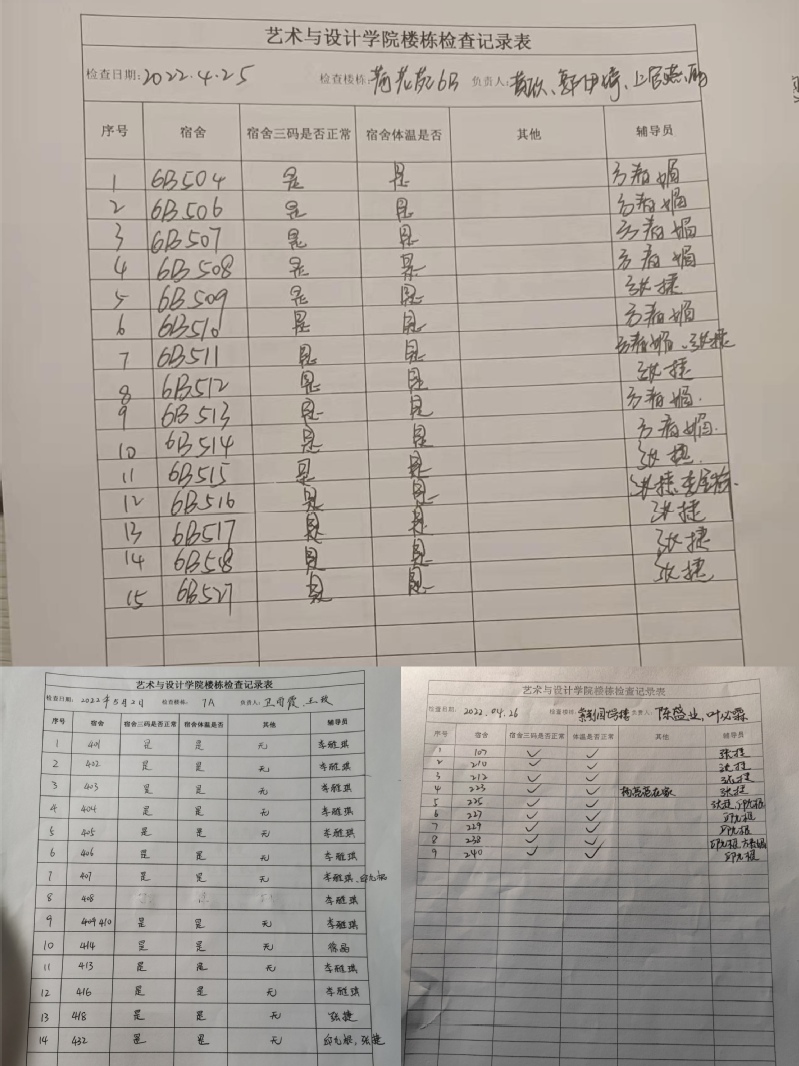 艺术与设计学院楼栋检查记录表
检查日期: 2022.4.25 检查楼栋: 荷花苑6B 负责人:
序号 宿舍 宿舍三码是否正常 宿舍体温是否 其他 辅导员
1 6B504 是 是 方春媚
2 6B506 是 是 方春媚
3 6B507 是 是 方春媚
4 6B508 是 是 方春媚
5 6B509 是 是 张捷
6 6B510 是 是 方春媚
7 6B511 是 是 方春媚、张捷
8 6B512 是 是 张捷
9 6B513 是 是 方春媚.
10 6B514 是 是 方春媚.
11 6B515 是 是 张捷.
12 6B516 是 是 张捷
13 6B517 是 是 张捷
14 6B518 是 是 张捷
15 6B527 是 是 张捷
艺术与设计学院楼栋检查记录表
检查日期: 2022年5月2日 检查楼栋: 7A 负责人:
序号 宿舍 宿舍三码是否正常 宿舍体温是否 其他 辅导员
1 401 是 是 无 李胜琪
2 402 是 是 无 李胜琪
3 403 是 是 无 李胜琪
4 404 是 是 无 李胜琪
5 405 是 是 无 李胜琪
6 406 是 是 无 李胜琪
7 407 是 是 无 李胜琪,
8 408 李胜琪
9 409 410 是 是 无 李胜琪
10 414 是 是 无 徐晶
11 413 是 是 无 李胜琪
12 416 是 是 无 李胜琪
13 418 是 是 无 张捷
14 432 是 是 无 张捷
艺术与设计学院楼栋检查记录表
检查日期: 2022.04.26 检查楼栋: 负责人: 陈盛业,叶必霖
序号 宿舍 宿舍三码是否正常 体温是否正常 其他 辅导员
1 107 ✓ ✓ 张捷
2 210 ✓ ✓ 张捷
3 212 ✓ ✓ 张捷
4 223 ✓ ✓ 在家 张捷
5 225 ✓ ✓ 张捷,
6 227 ✓ ✓
7 229 ✓ ✓
8 238 ✓ ✓ 方春媚
9 240 ✓ ✓